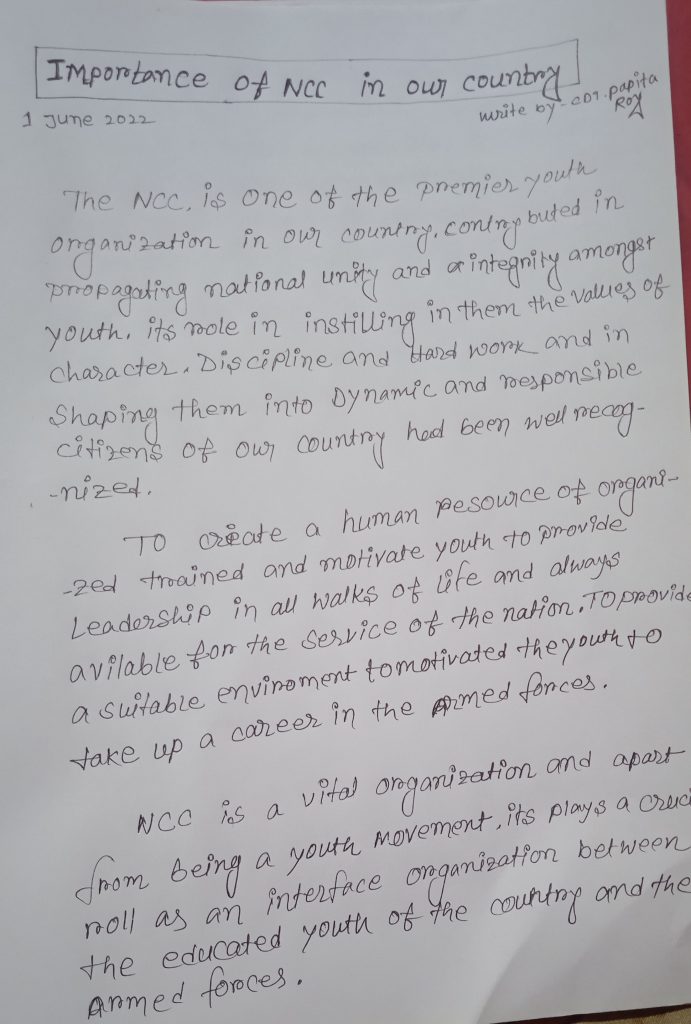 Importance of NCC in our country
1 June 2022
write by - CDT. Papita Roy
The NCC, is one of the premier youth
organization in our country. contry buted in
propagating national unity and a integrity amongst
youth. its role in instilling in them the values of
character. Discipline and Hard work and in
shaping them into Dynamic and responsible
citizens of our country had been well recog-
-nized.
To create a human Resource of organi-
-zed trained and motivate youth to provide
Leadership in all walks of life and always
avilable for the service of the nation. TO provide
a suitable enviroment to motivated the youth to
take up a career in the Armed forces.
NCC is a vital organization and apart
from being a youth Movement, its plays a cruci
roll as an interface organization between
the educated youth of the country and the
Armed forces.